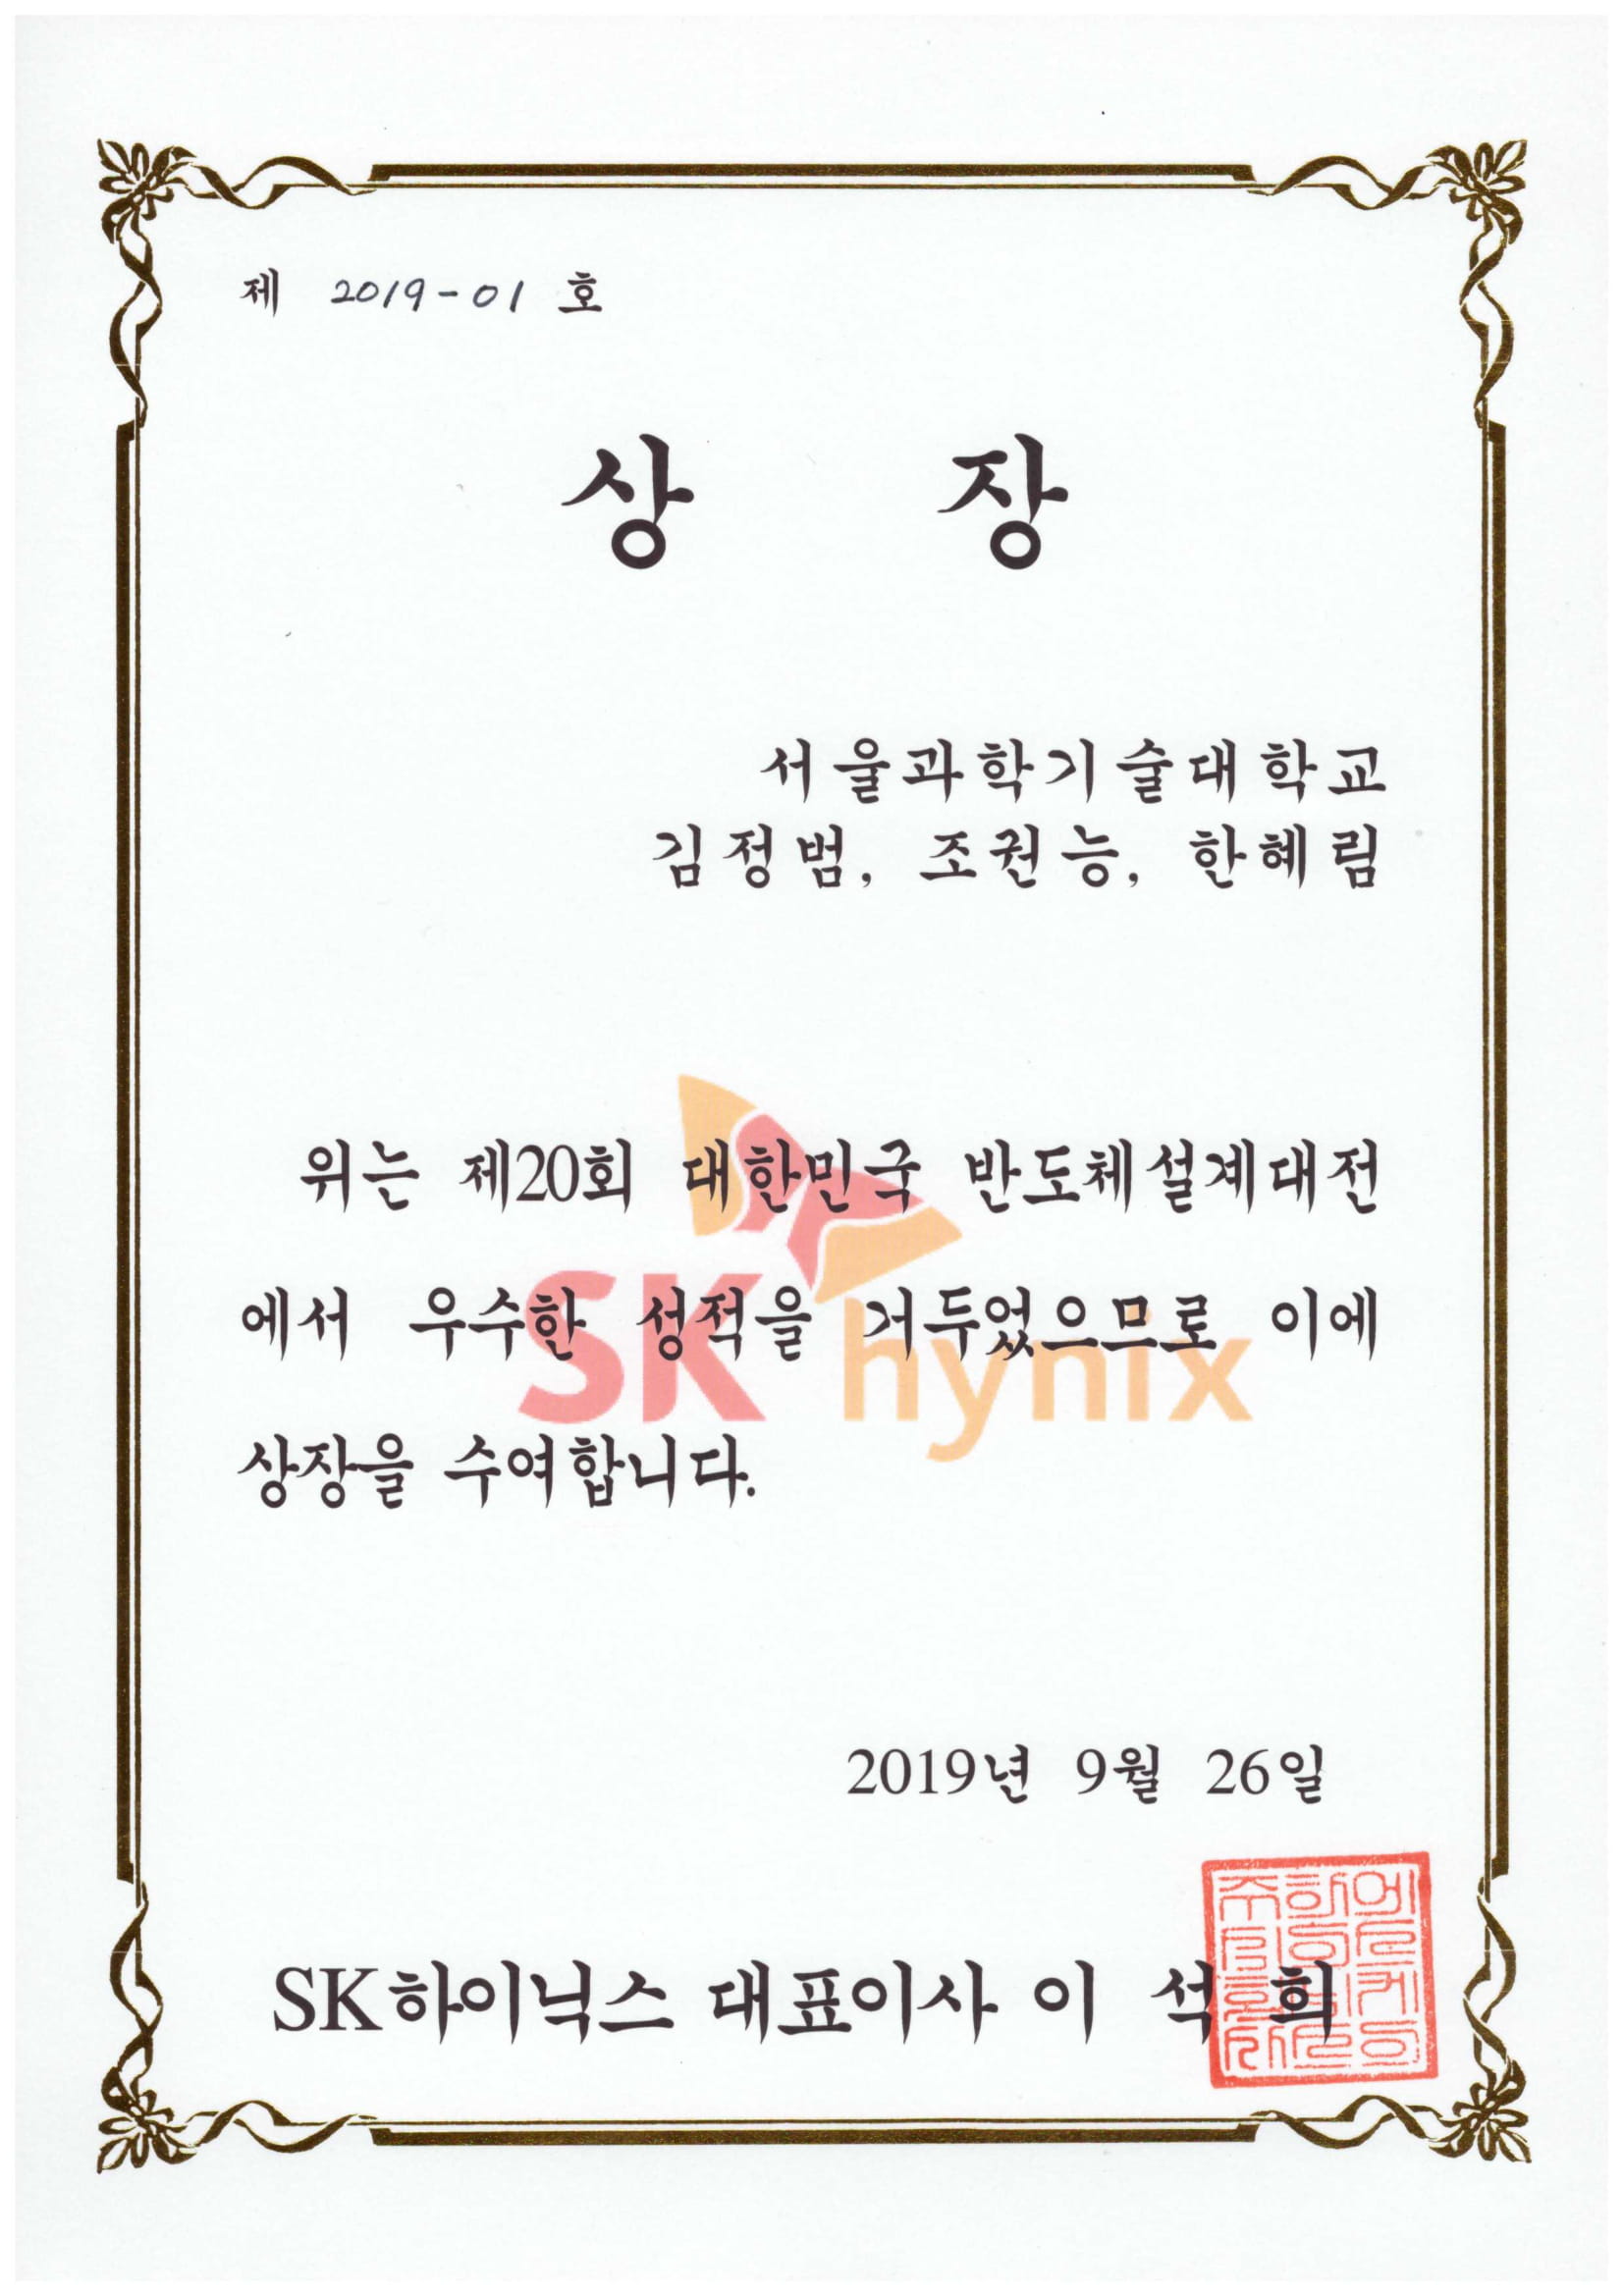 제 2019-01 호
상 장
서울과학기술대학교
김정범, 조권능, 한혜림
위는 제20회 대한민국 반도체설계대전
에서 우수한 성적을 거두었으므로 이에
상장을 수여합니다.
SK hynix
2019년 9월 26일
SK하이닉스 대표이사 이 석 희